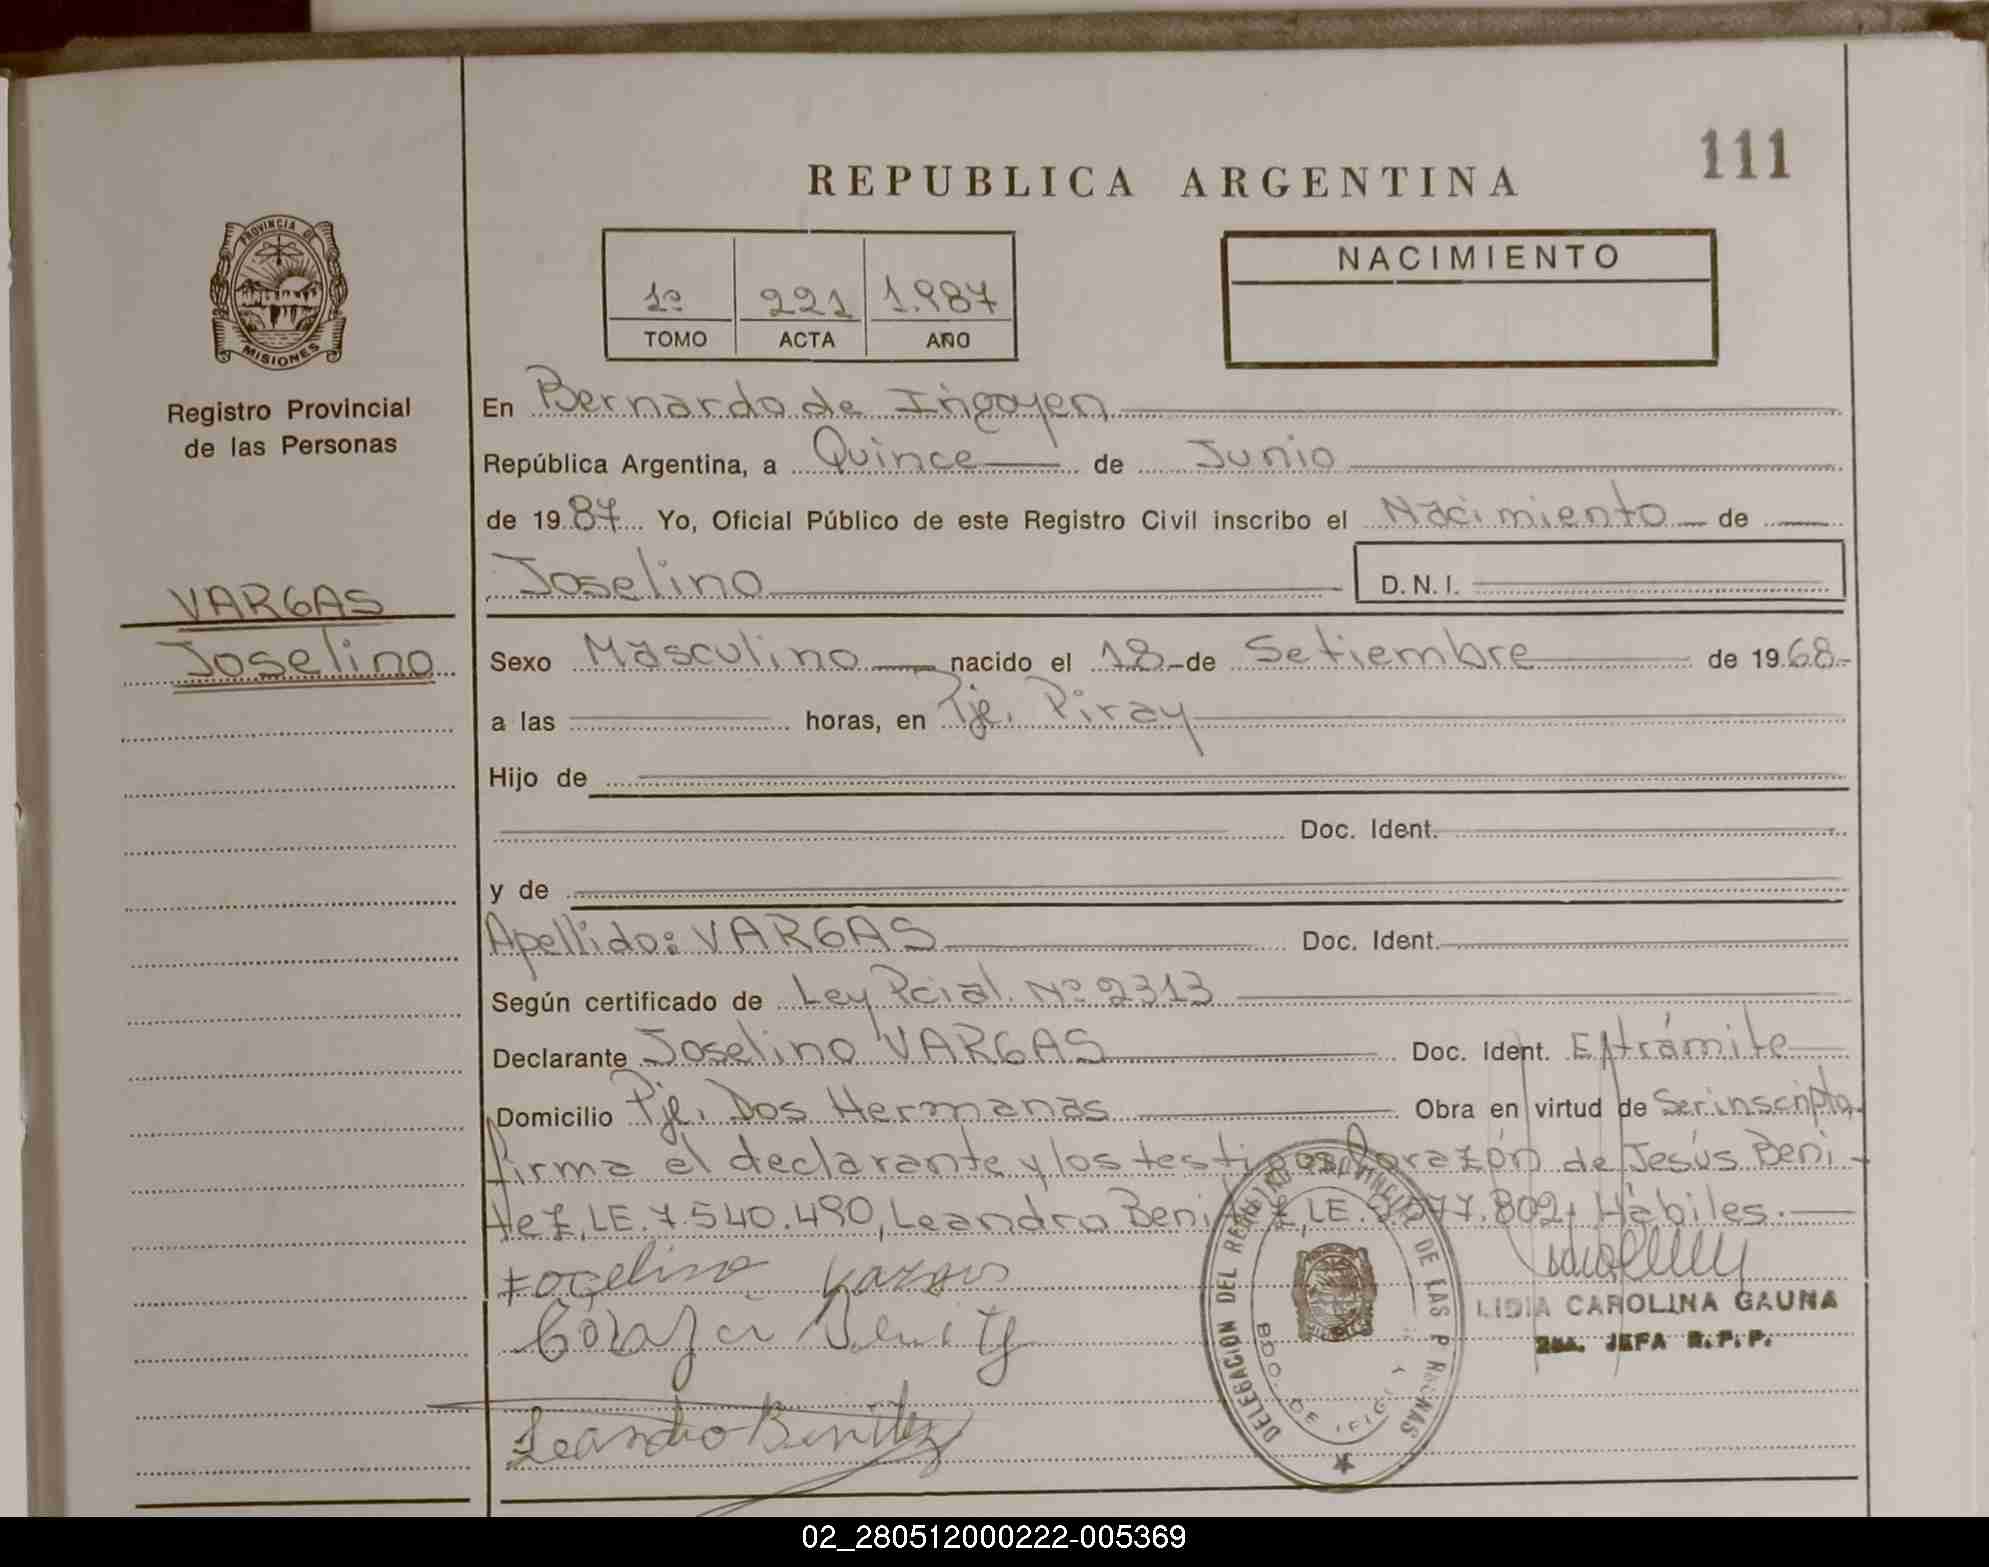 111
REPUBLICA ARGENTINA
PROVINCIA DE MISIONES
Registro Provincial
de las Personas
1º 221 1.987
TOMO ACTA AÑO
NACIMIENTO
En Bernardo de Irigoyen
República Argentina, a Quince de Junio
de 1987 Yo, Oficial Público de este Registro Civil inscribo el Nacimiento de
VARGAS
Joselino
Joselino D.N.I.
Sexo Masculino nacido el 18 de Setiembre de 1968
a las horas, en Pje. Piray
Hijo de
Doc. Ident.
y de
Apellido: VARGAS Doc. Ident.
Según certificado de Ley Pcial. Nº 2313
Declarante Joselino VARGAS Doc. Ident. E/trámite
Domicilio Pje. Dos Hermanas Obra en virtud de Ser inscripto
firma el declarante y los testigos Corazón de Jesús Beni-
tez, LE. 7.540.490, Leandro Benitez, LE. 77.802, Hábiles.
Leandro Benitez
DELEGACION DEL REGISTRO PROVINCIAL DE LAS PERSONAS
BDO. DE IRIGOYEN
LIDIA CAROLINA GAUNA
2da. JEFA R.P.P.
02_280512000222-005369